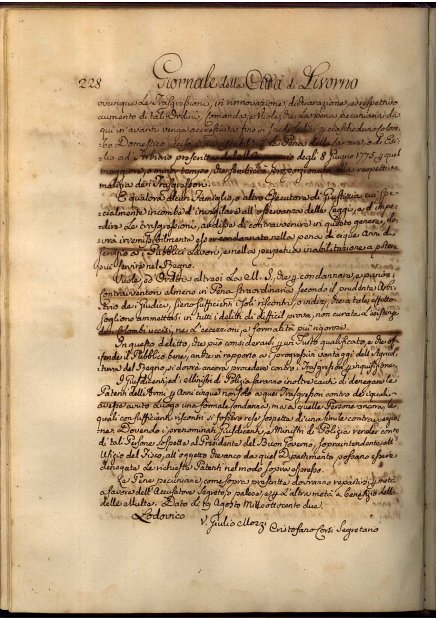 228 Giornale della Città di Livorno
ovunque de Trasgressioni, in rinnovazione, dichiarazione, e respettivo
aumento di tali Ordini, Comanda, e Vuole, che la pena pecuniaria da
qui in avanti venga accresciuta fino in Scudi
bo Domestico ucciso, la Pena della Carcere, ed Esi-
lio ad Arbitrio prescritta dal degli 8 Giugno 1775, e quel
maggiore, o minor tempo, che sembrerà proporzionato alla respettiva
malizia dei Trasgressori.
E qualora un Famiglio, o altro Esecutore di Giustizia cui spe-
cialmente incombe d'invigilare all'osservanza delle Leggi, e d'impe-
dire le trasgressioni, ardisse di contravvenire in questo genere,
irremissibilmente condannato nella pena di cinque Anni di
a Pubblici Lavori, e nella perpetua inabilitazione a poter
più servire nel Bagno.
Vuole, ed Ordina altresì La M. S. che per condannare, e punire i
Contravventori almeno in Pena straordinaria secondo il prudente Arbi-
trio dei Giudici, sieno sufficienti i soli riscontri, o indizi, che a tale effetto
sogliono ammettersi in tutti i delitti di difficil prova, non curata l'esistenza
uccisi, ne l'eccezioni, e formalità più rigorose.
In questo delitto, che può considerarsi per un Furto qualificato, e che of-
fende il Pubblico bene, anche in rapporto ai progressivi vantaggi dell'Agricol-
tura del Regno, si dovrà ancora procedere contro i Trasgressori per inquisizione.
I Giusdicenti, ed i Ministri di Polizia saranno inoltre cauti di denegare le
Patenti dell'Armi per Anni cinque non solo a quei Trasgressori contro dei quali
avesse avuto luogo una formale condanna, ma a quelle Persone ancora, cui
quali con sufficienti riscontri si fossero rese sospette di una simile contravvenzio-
ne: e Dovendo i prenominati Giusdicenti, e Ministri di Polizia render conto
di tali Persone sospette al Presidente del Buon Governo, soprintendente all'
Ufizio del Fisco, all'oggetto che anco da quel Dipartimento possano essere
denegate le richieste Patenti nel modo sopra espresso.
Le Pene pecuniarie, come sopra prescritte dovranno repartirsi per metà
a favore dell'Accusatore Segreto, o palese, e per l'altra metà a benefizio della
delle Multe. Dato li 19 Agosto Milleottocento due.
Lodovico
V. Giulio Mozzi
Cristofano Corsi Segretario